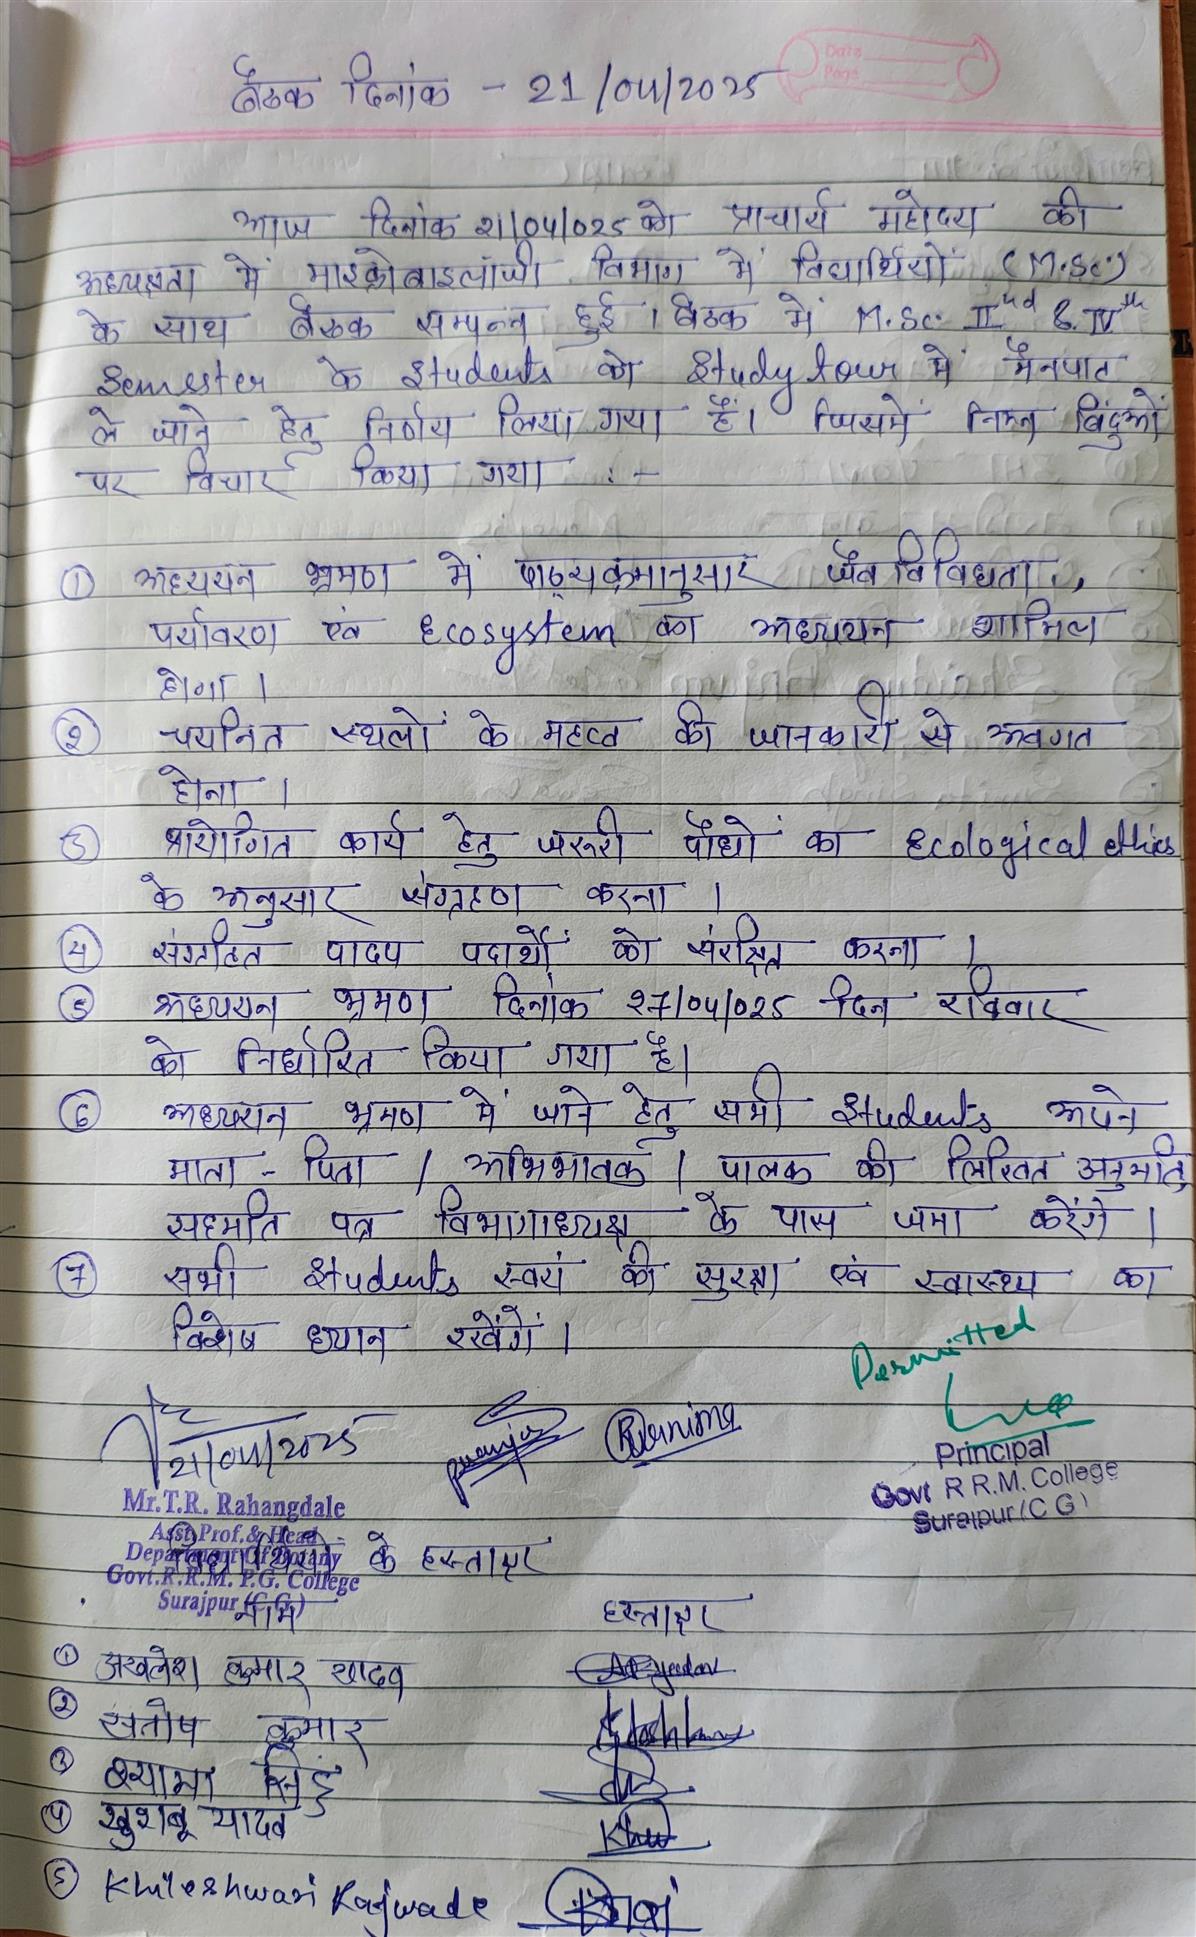 Date
Page
बैठक दिनांक - 21/04/2025
आज दिनांक 21/04/025 को प्राचार्य महोदय की
अध्यक्षता में माइक्रोबाइलॉजी विभाग में विद्यार्थियों (M.Sc.)
के साथ बैठक सम्पन्न हुई। बैठक में M.Sc. IInd & IVth
Semester के Students को Study tour में मैनपाट
ले जाने हेतु निर्णय लिया गया है। जिसमें निम्न बिंदुओं
पर विचार किया गया :-
① अध्ययन भ्रमण में पाठ्यक्रमानुसार जैव विविधता,
पर्यावरण एवं Ecosystem का अध्ययन शामिल
होगा।
② चयनित स्थलों के महत्व की जानकारी से अवगत
होना।
③ प्रायोगित कार्य हेतु जरूरी पौधों का Ecological ethics
के अनुसार संग्रहण करना।
④ संग्रहित पादप पदार्थों को संरक्षित करना।
⑤ अध्ययन भ्रमण दिनांक 27/04/025 दिन रविवार
को निर्धारित किया गया है।
⑥ अध्ययन भ्रमण में जाने हेतु सभी Students अपने
माता-पिता / अभिभावक / पालक की लिखित अनुमति
सहमति पत्र विभागाध्यक्ष के पास जमा करेंगे।
⑦ सभी Students स्वयं की सुरक्षा एवं स्वास्थ्य का
विशेष ध्यान रखेंगें।
Permitted
21/04/2025 Purnima
Principal
Govt R R.M. College
Surajpur (C G)
Mr.T.R. Rahangdale
Asst.Prof.& Head
Department Of Botany
Govt.R.R.M. P.G. College
Surajpur (C.G.)
विद्यार्थियों के हस्ताक्षर
नाम हस्ताक्षर
① अखलेश कुमार यादव
② संतोष कुमार
③ श्यामा सिंह
④ खुशबू यादव Khu
⑤ Khileshwari Rajwade